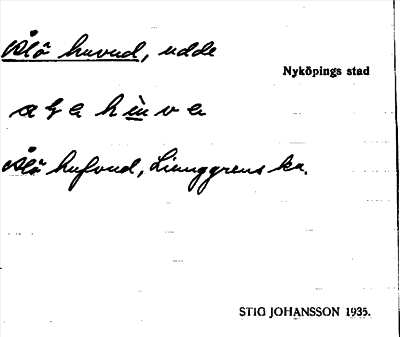 Ålö huvud, udde
Nyköpings stad
Ålö hufvud, Ljunggrens ka.
STIG JOHANSSON 1935.